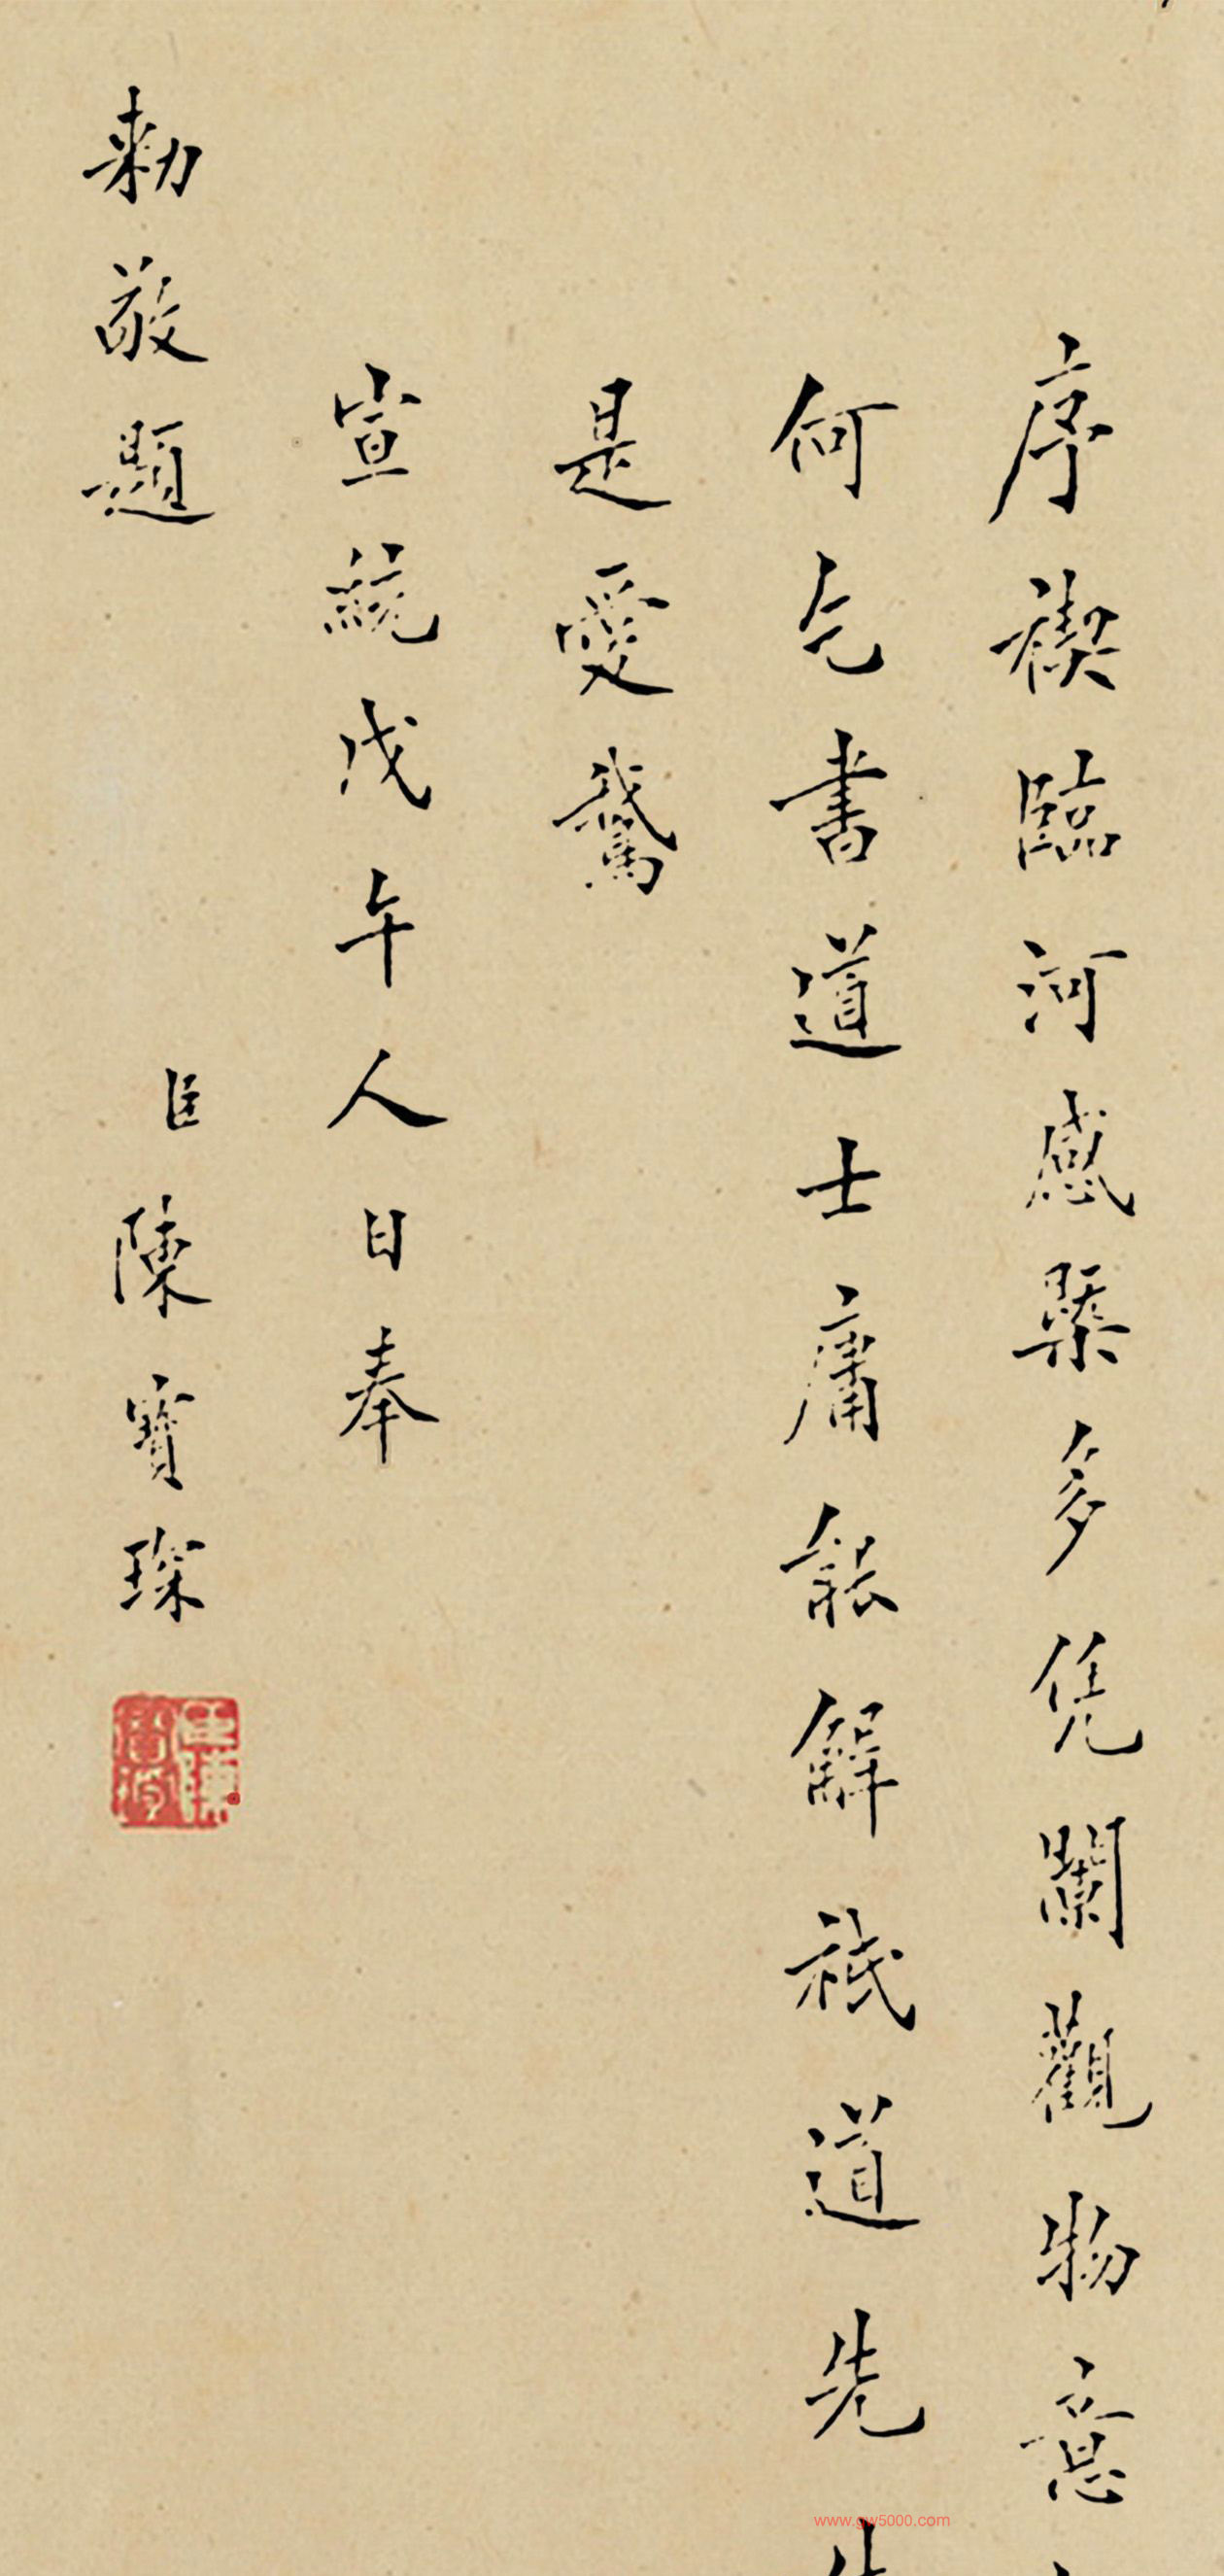 序禊臨河感槩多凭闌觀物意
何乞書道士庸能解祇道先
是愛鵞
宣統戊午人日奉
勅敬題 臣陳寶琛
www.gw5000.com